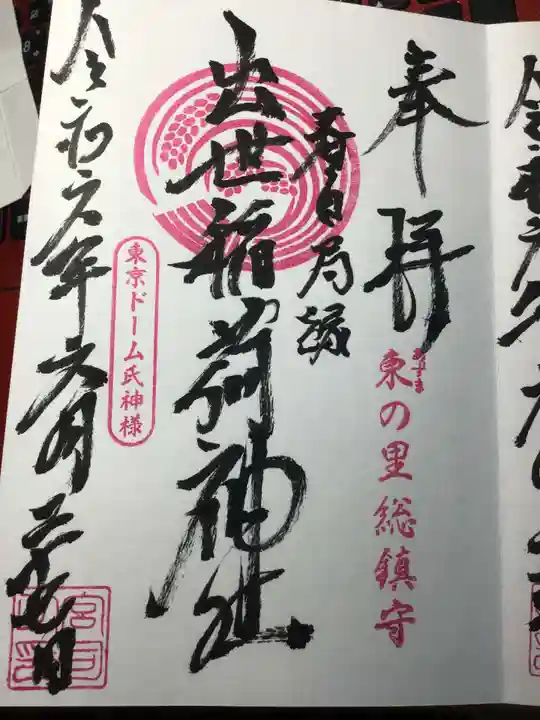 奉拝
あづま
東の里総鎮守
春日局
出世稲荷神社
東京ドーム氏神様
令和六年六月二十七日